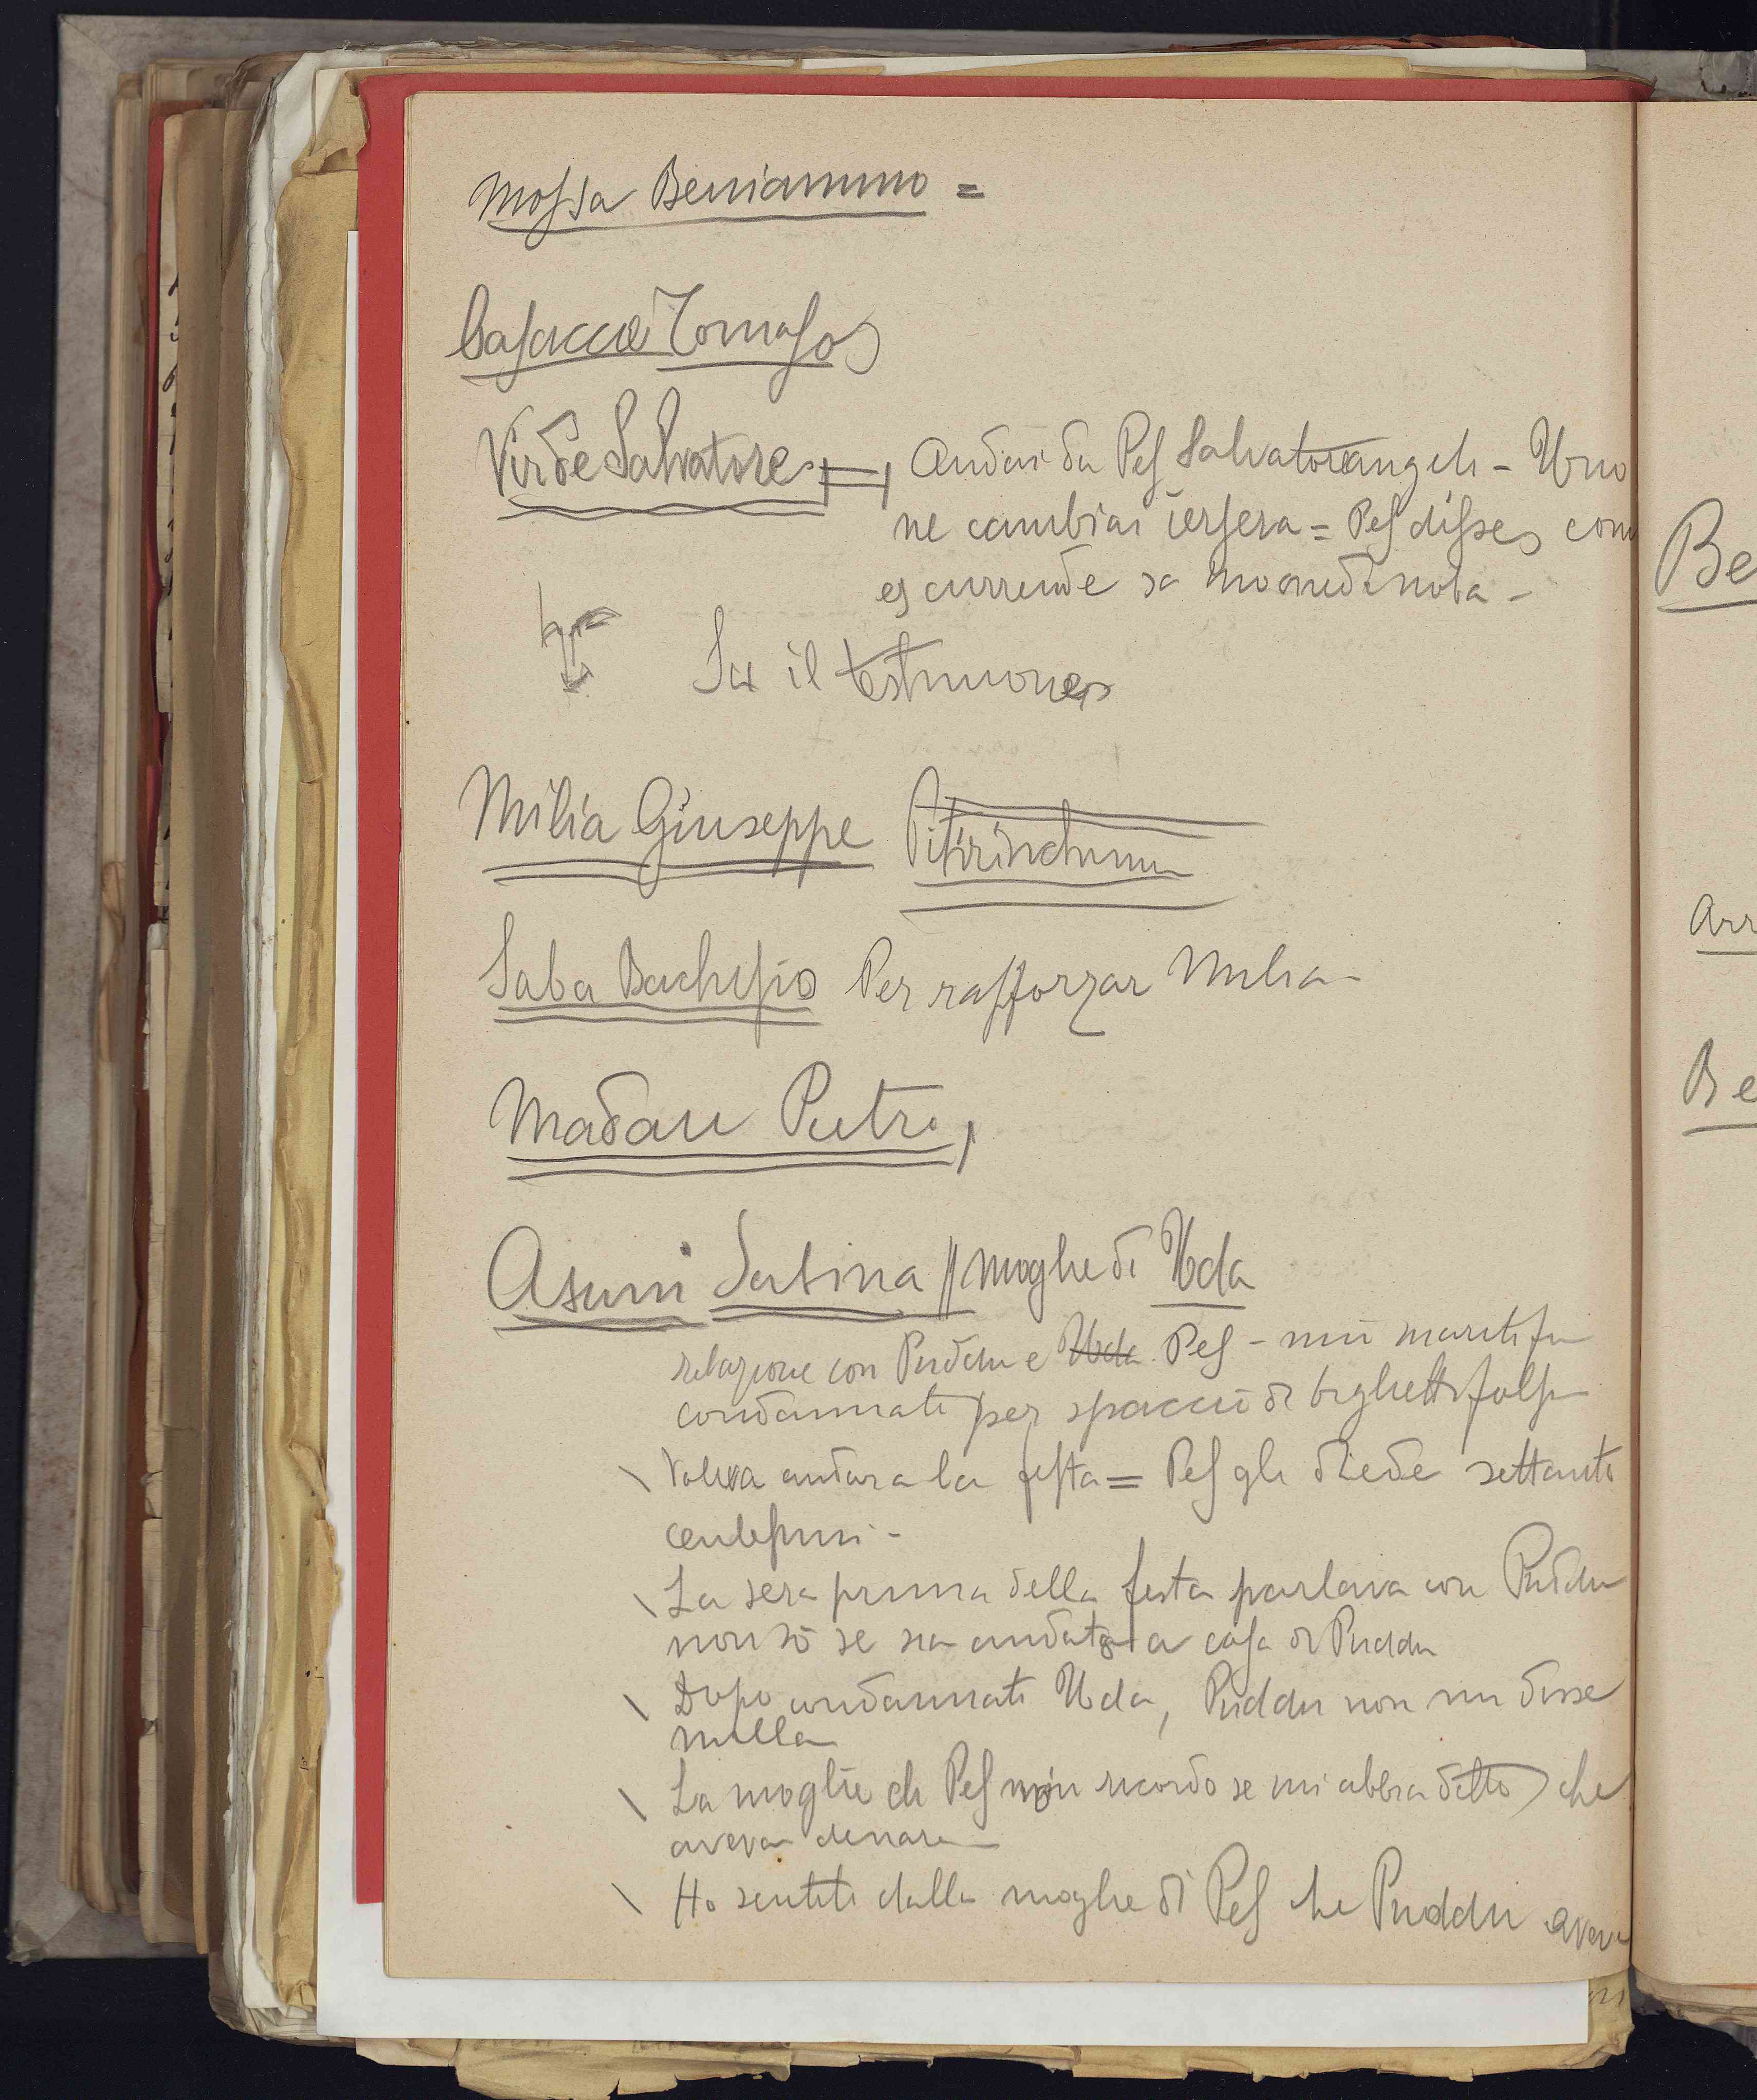 Mossa Beniamino =
Casacca Tomaso
Virde Salvatore Andai da Pes Salvatorangelo - Uno
ne cambiai iersera = Pes disse, com
es currende sa moneda noba -
Su il testimone
Milia Giuseppe
Saba Bachisio Per rafforzar Milia -
Madau Pietro,
Asuni Satina // moglie di Uda
relazione con Puddu e Uda Pes - mio marito fu
condannato per spaccio di biglietti falsi
\ Voleva andare a la festa = Pes gli diede settanta
centesimi -
\ La sera prima della festa parlava con Puddu
non so se sia andato a casa di Puddu
\ Dopo condannato Uda, Puddu non mi disse
nulla
\ La moglie di Pes non ricordo se mi abbia detto che
aveva denari
\ Ho sentito dalla moglie di Pes che Puddu aveva
Be
Arr
Be